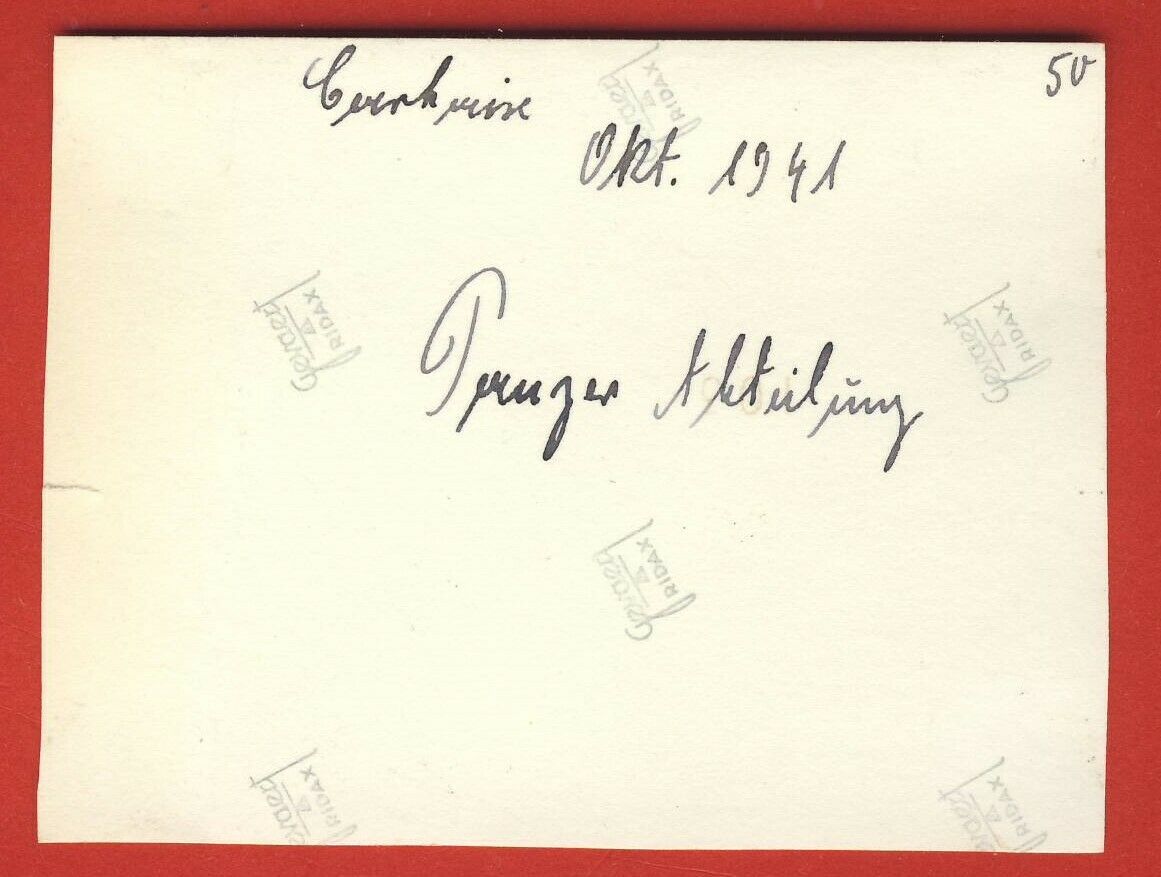 50
Okt. 1941
Panzer Abteilung
Gevaert
RIDAX
Gevaert
RIDAX
Gevaert
RIDAX
Gevaert
RIDAX
Gevaert
RIDAX
Gevaert
RIDAX